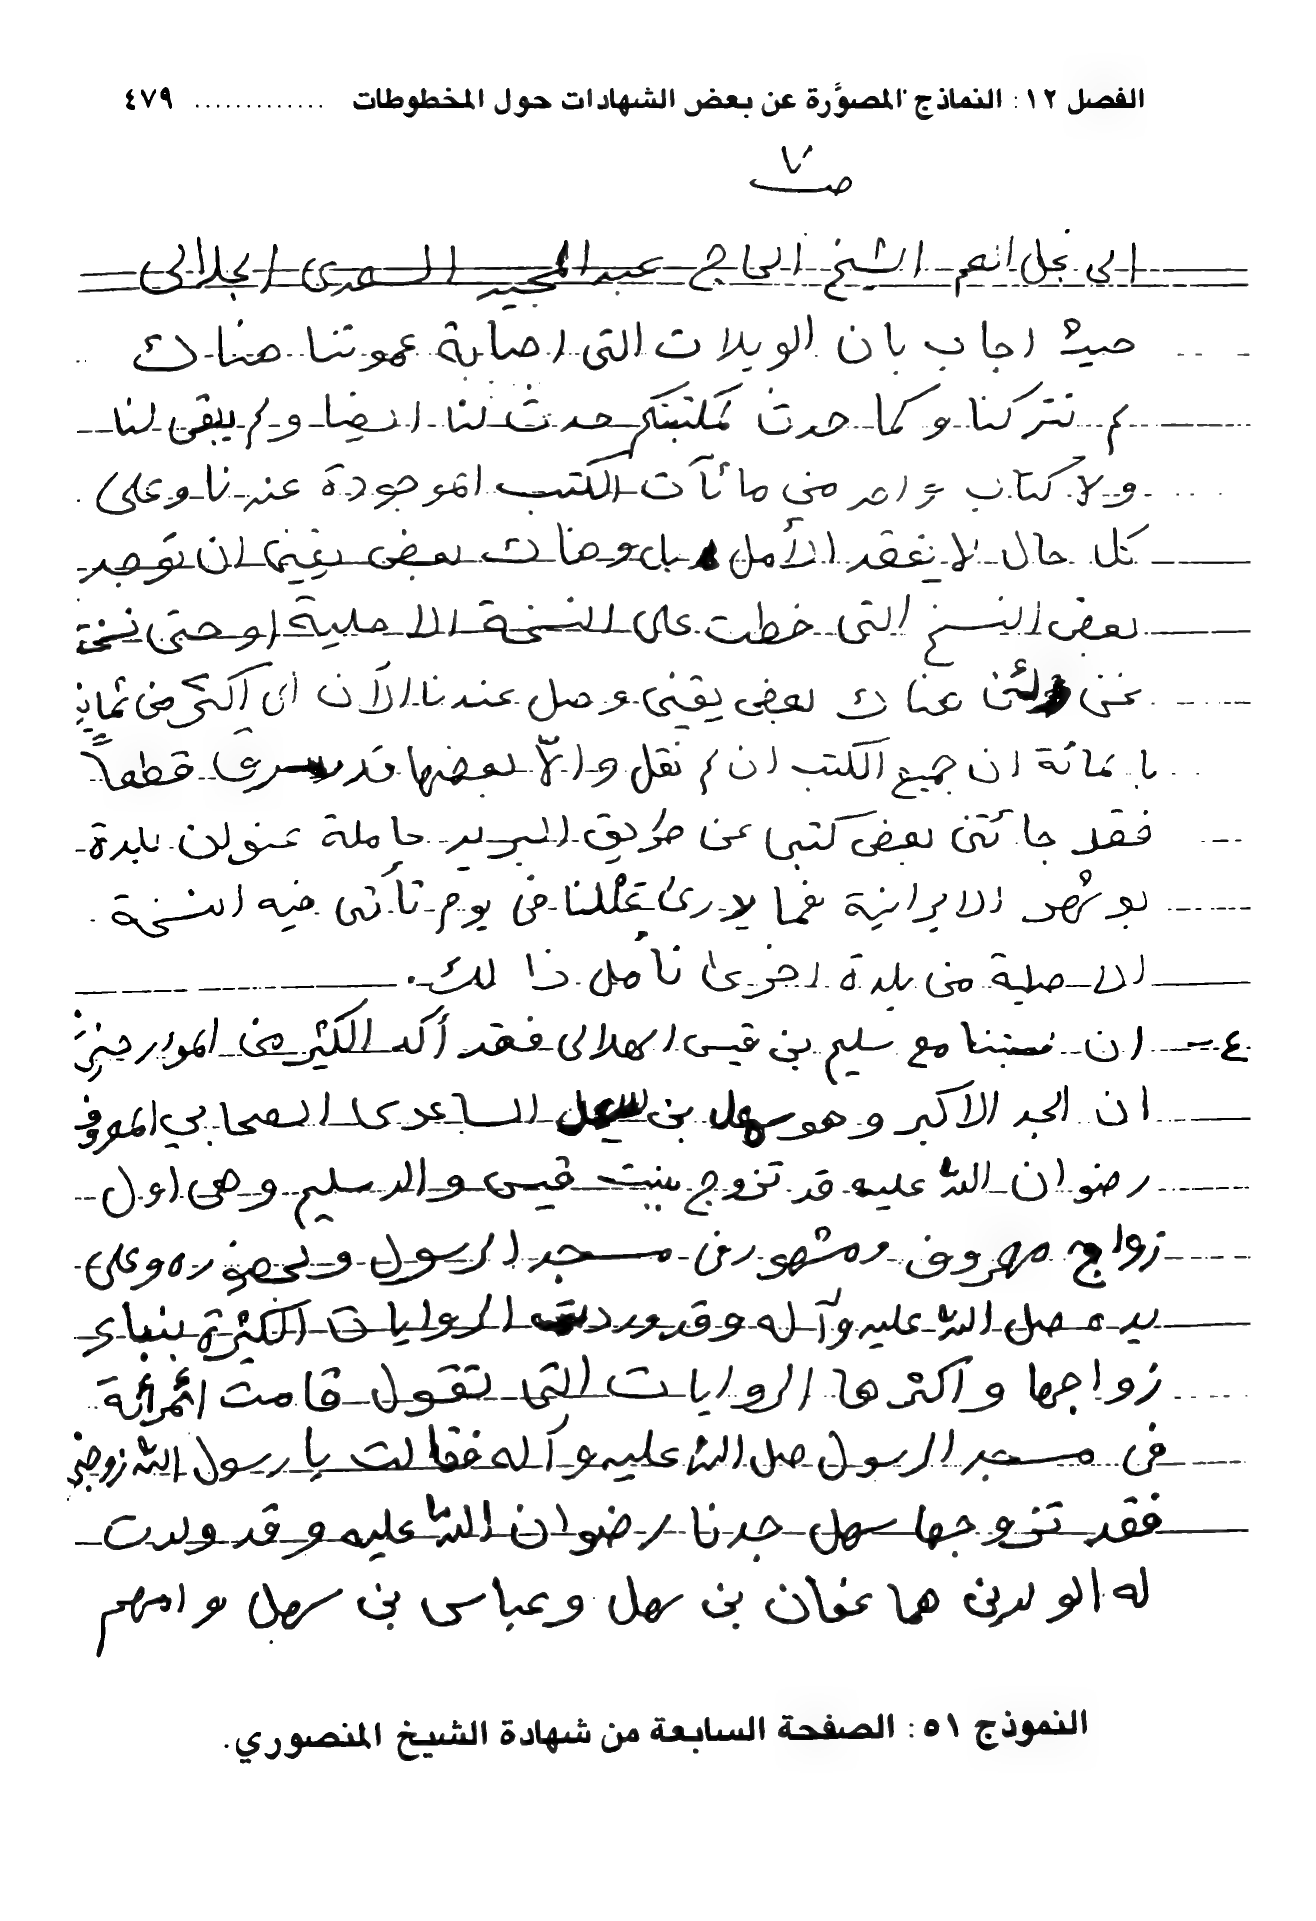 الفصل ١٢: النماذج المصوَّرة عن بعض الشهادات حول المخطوطات ............. ٤٧٩
ص ٧
الى نجل انهم الشيخ الحاج عبد المجيد السعدى الجلالى
حيث اجاب بان الويلات التى اصابة عموتنا هناك
لم تتركنا وكما حدث لمكتبتكم حدث لنا ايضا ولم يبقى لنا
ولا كتاب واحد من مائآت الكتب الموجودة عندنا وعلى
كل حال لا يفقد الأمل بل وهناك بعض يقين ان توجد
بعض النسخ التى خطت على النسخة الاصلية او حتى نسخة
نحن ولئن هناك بعض يقين وصل عندنا الآن اى اكثر من ثمانين
بالمائة ان جميع الكتب ان لم نقل والّا بعضها قد سرق قطعاً
فقد جائتنى بعض كتبى عن طريق البريد حاملة عنوان بلدة
بوشهر الايرانية فما لا يدرى لعلنا فى يوم تأتى فيه النسخة
الاصلية من بلدة اخرى نأمل ذالك.
٤- ان نسبنا مع سليم بن قيس الهلالى فقد أكد الكثير من المؤرخين
ان الجد الاكبر وهو سهل بن سعد الساعدى الصحابي المعروف
رضوان الله عليه قد تزوج ببنت قيس والد سليم وهى اول
زواج معروف ومشهور فى مسجد الرسول وبحضوره وعلى
يده صل الله عليه وآله وقد وردت الروايات الكثيرة بنباء
زواجها وآكثرها الروايات التى تقول قامت امرأئة
فى مسجد الرسول صل الله عليه وآله فقالت يا رسول الله زوجنى
فقد تزوجها سهل جدنا رضوان الله عليه وقد ولدت
له الولدين هما عفان بن سهل وعباس بن سهل وامهم
النموذج ٥١: الصفحة السابعة من شهادة الشيخ المنصوري.